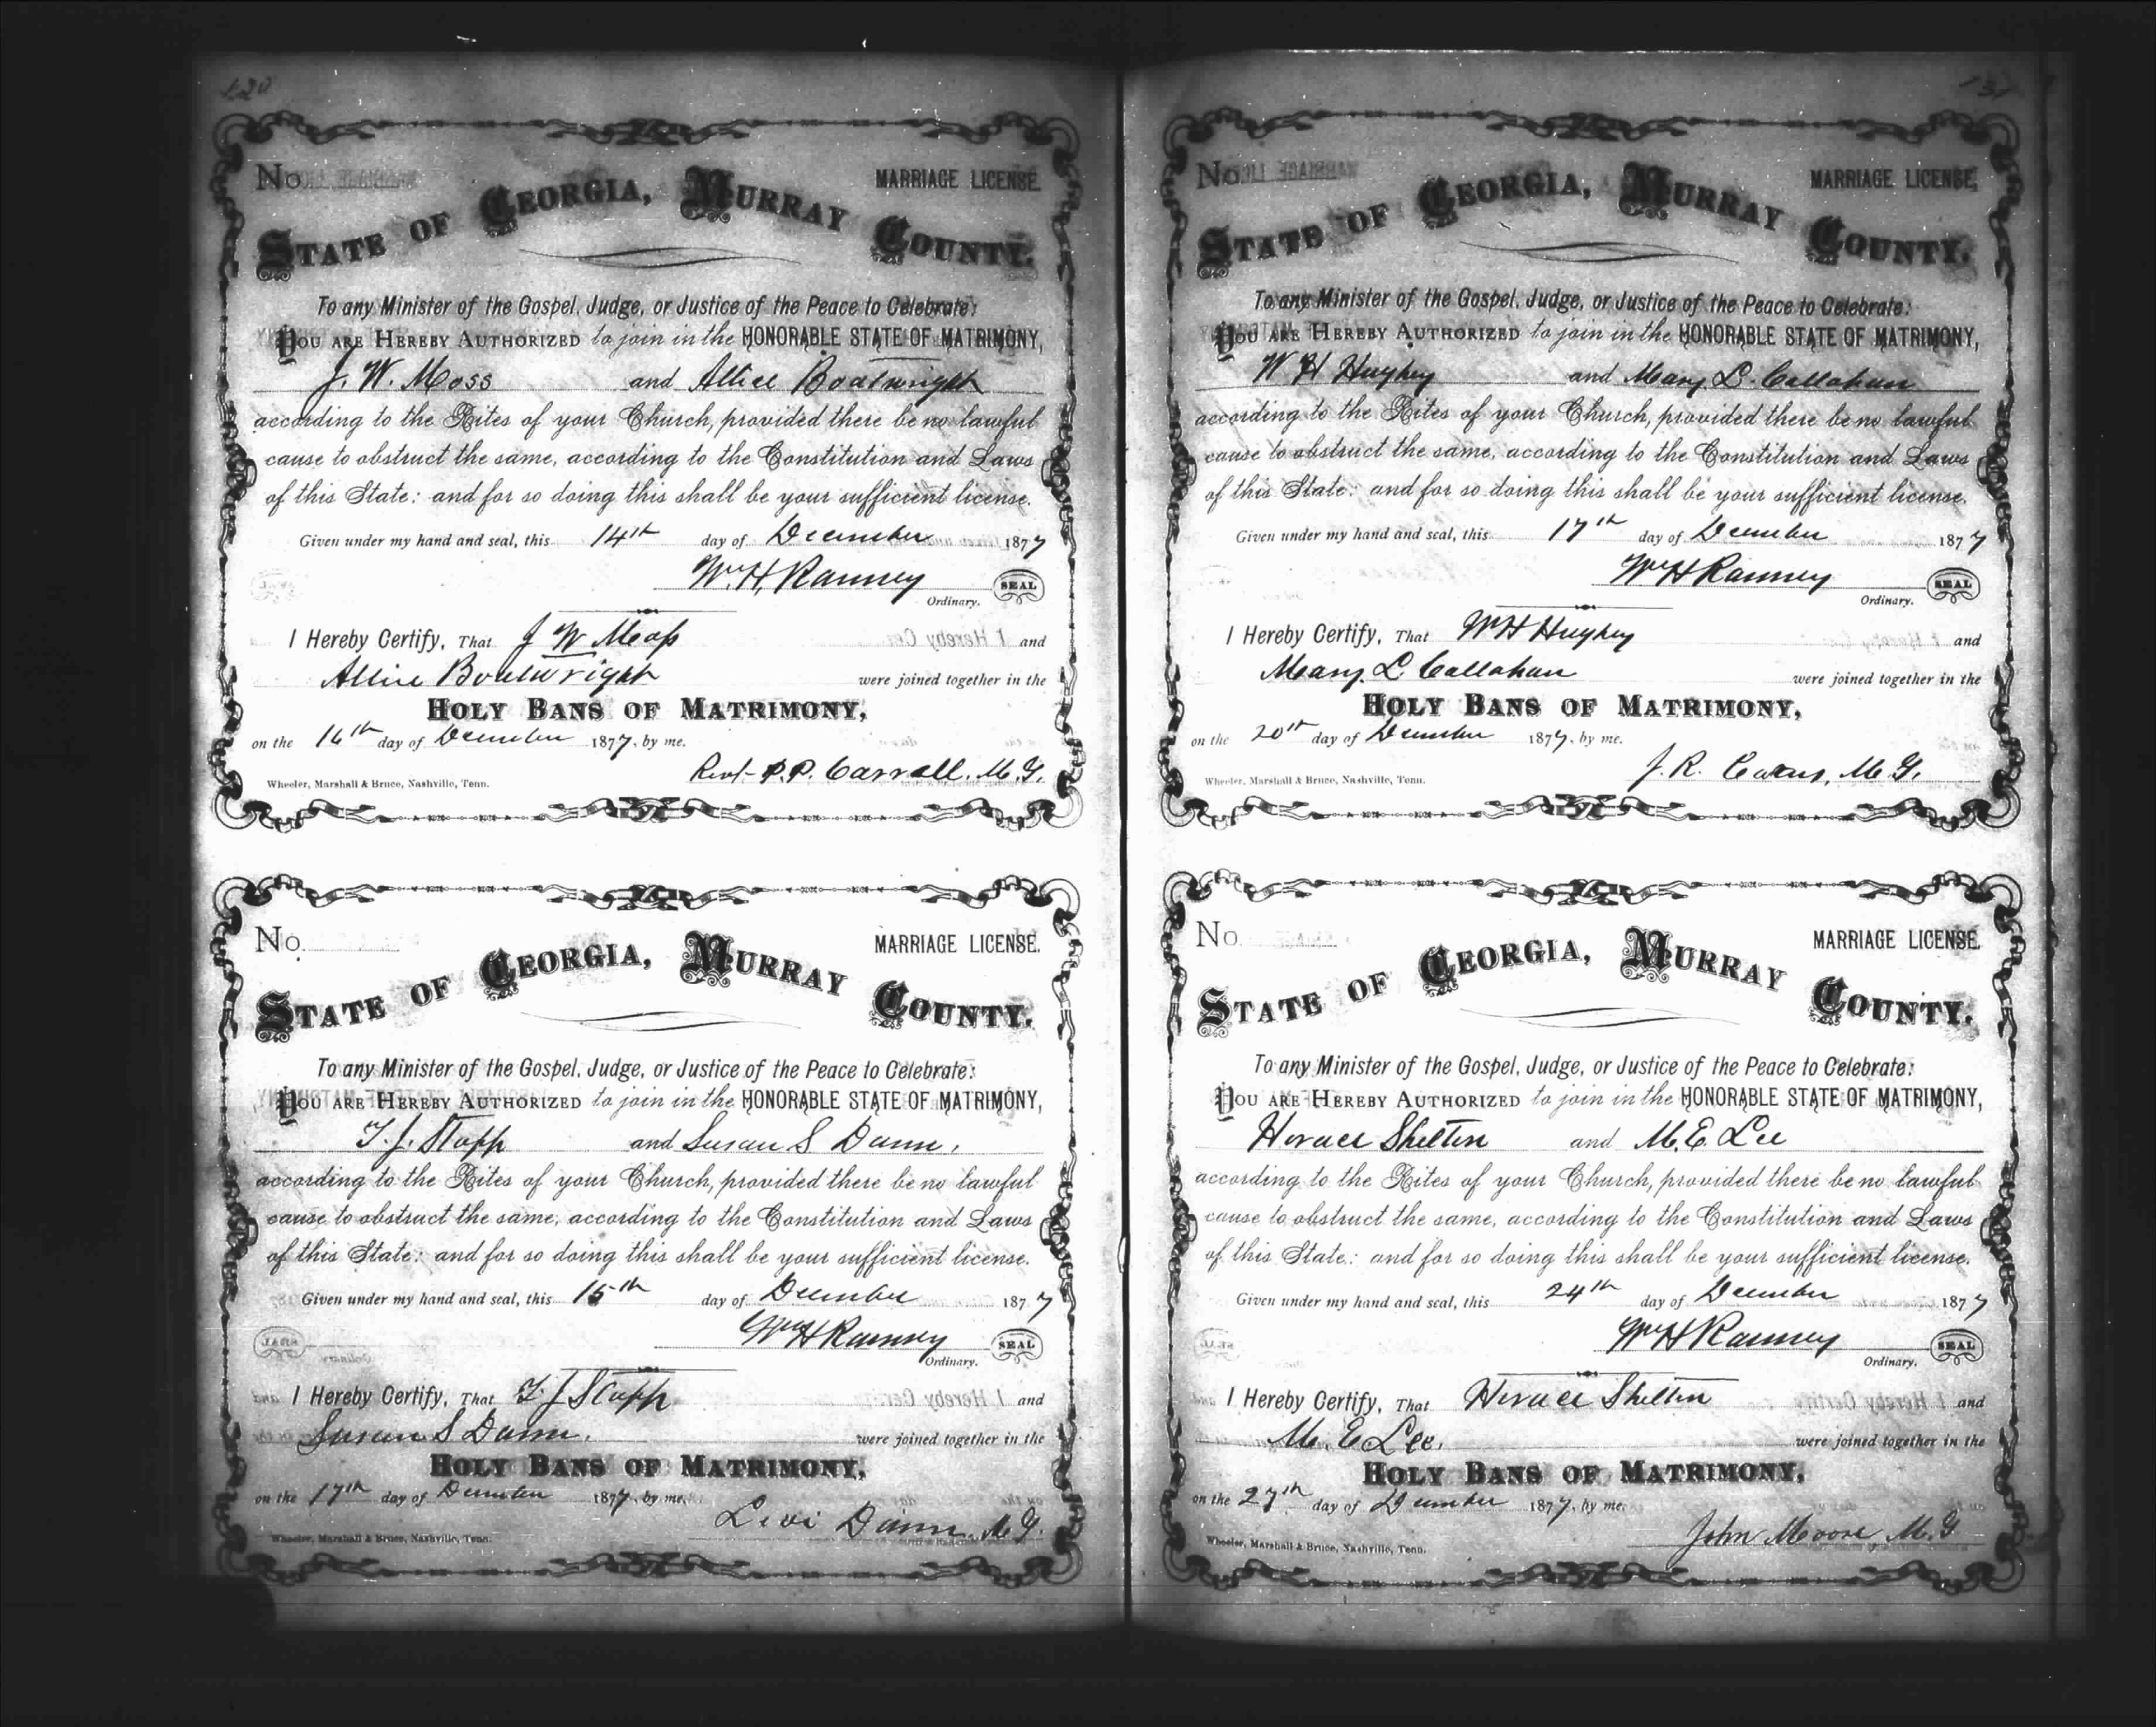 No. MARRIAGE LICENSE.
STATE OF GEORGIA, MURRAY COUNTY.
To any Minister of the Gospel, Judge, or Justice of the Peace to Celebrate:
YOU ARE HEREBY AUTHORIZED to join in the HONORABLE STATE OF MATRIMONY,
J. W. Moss and Allice Boatwright
according to the Rites of your Church, provided there be no lawful
cause to obstruct the same, according to the Constitution and Laws
of this State: and for so doing this shall be your sufficient license.
Given under my hand and seal, this 14th day of December 1877
Wm. H. Ranney SEAL
Ordinary.
I Hereby Certify, That J W Moss and
Allice Boatwright were joined together in the
HOLY BANS OF MATRIMONY,
on the 16th day of December 1877, by me.
Revd. P. P. Carroll, M. G.
Wheeler, Marshall & Bruce, Nashville, Tenn.
No. MARRIAGE LICENSE.
STATE OF GEORGIA, MURRAY COUNTY.
To any Minister of the Gospel, Judge, or Justice of the Peace to Celebrate:
YOU ARE HEREBY AUTHORIZED to join in the HONORABLE STATE OF MATRIMONY,
T. J. Stapp and Susan S Dunn,
according to the Rites of your Church, provided there be no lawful
cause to obstruct the same, according to the Constitution and Laws
of this State: and for so doing this shall be your sufficient license.
Given under my hand and seal, this 15th day of December 1877
Wm H Ranney SEAL
Ordinary.
I Hereby Certify, That T. J Stapp and
Susan S Dunn, were joined together in the
HOLY BANS OF MATRIMONY,
on the 17th day of December 1877, by me.
Levi Dunn, M. G.
Wheeler, Marshall & Bruce, Nashville, Tenn.
131
No. MARRIAGE LICENSE,
STATE OF GEORGIA, MURRAY COUNTY.
To any Minister of the Gospel, Judge, or Justice of the Peace to Celebrate:
YOU ARE HEREBY AUTHORIZED to join in the HONORABLE STATE OF MATRIMONY,
W H Hughey and Mary L. Callahan
according to the Rites of your Church, provided there be no lawful
cause to obstruct the same, according to the Constitution and Laws
of this State: and for so doing this shall be your sufficient license.
Given under my hand and seal, this 17th day of December 1877
Wm H Ranney SEAL
Ordinary.
I Hereby Certify, That W H Hughey and
Mary L Callahan were joined together in the
HOLY BANS OF MATRIMONY,
on the 20th day of December 1877, by me.
J. R. M. G.
Wheeler, Marshall & Bruce, Nashville, Tenn.
No. MARRIAGE LICENSE.
STATE OF GEORGIA, MURRAY COUNTY.
To any Minister of the Gospel, Judge, or Justice of the Peace to Celebrate:
YOU ARE HEREBY AUTHORIZED to join in the HONORABLE STATE OF MATRIMONY,
Horace Shelton and M. E. Lee
according to the Rites of your Church, provided there be no lawful
cause to obstruct the same, according to the Constitution and Laws
of this State: and for so doing this shall be your sufficient license.
Given under my hand and seal, this 24th day of December 1877
Wm H Ranney SEAL
Ordinary.
I Hereby Certify, That Horace Shelton and
M. E Lee, were joined together in the
HOLY BANS OF MATRIMONY,
on the 27th day of December 1877, by me.
John Moore, M. G
Wheeler, Marshall & Bruce, Nashville, Tenn.